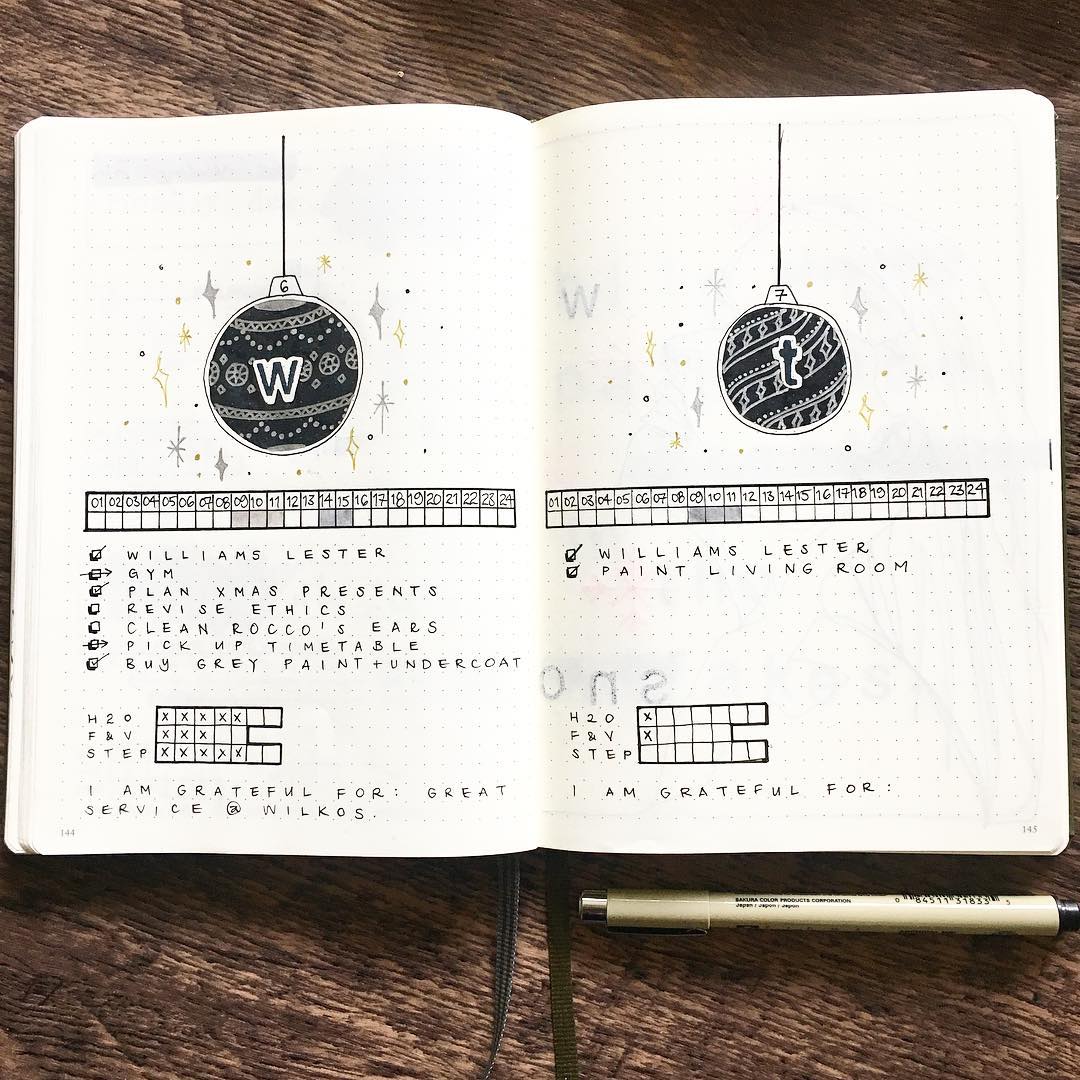 6
W
01 02 03 04 05 06 07 08 09 10 11 12 13 14 15 16 17 18 19 20 21 22 23 24
WILLIAMS LESTER
GYM
PLAN XMAS PRESENTS
REVISE ETHICS
CLEAN ROCCO'S EARS
PICK UP TIMETABLE
BUY GREY PAINT+UNDERCOAT
H2O X X X X X
F&V X X X
STEP X X X X X
I AM GRATEFUL FOR: GREAT
SERVICE @ WILKOS.
144
7
t
01 02 03 04 05 06 07 08 09 10 11 12 13 14 15 16 17 18 19 20 21 22 23 24
WILLIAMS LESTER
PAINT LIVING ROOM
H2O X
F&V X
STEP
I AM GRATEFUL FOR:
145
SAKURA COLOR PRODUCTS CORPORATION
Japan / Japon / Japón
0 84511 31833 5